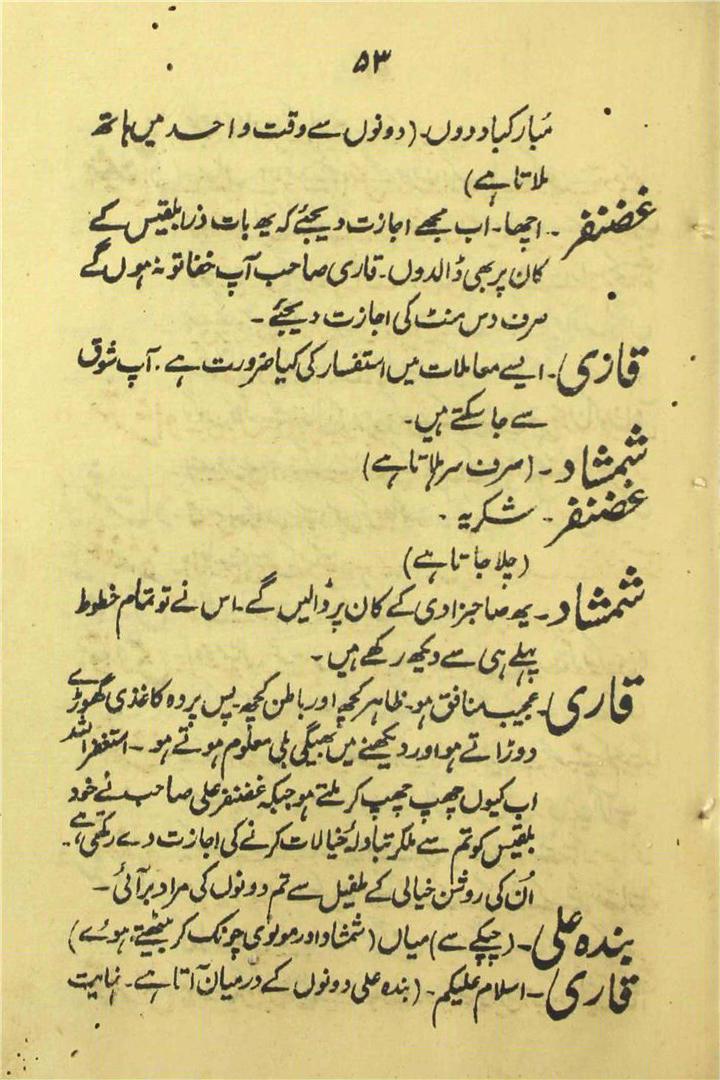 ۵۳
مُبارکباد دوں۔ (دونوں سے وقت واحد میں ہاتھ
ملاتا ہے)
غضنفر ۔ اچھا۔ اب مجھے اجازت دیجئے کہ یہ بات ذرا بلقیس کے
کان پر بھی ڈالدوں۔ قاری صاحب آپ خفا تو نہ ہوں گے
صرف دس منٹ کی اجازت دیجئے ۔
قاری ۔ ایسے معاملات میں استفسار کی کیا ضرورت ہے ۔ آپ شوق
سے جا سکتے ہیں۔
شمشاد ۔ (صرف سر ہلاتا ہے)
غضنفر ۔ شکریہ ۔
(چلا جاتا ہے)
شمشاد ۔ یہ صاحبزادی کے کان پر ڈالیں گے۔ اس نے تو تمام خطوط
پہلے ہی سے دیکھ رکھے ہیں ۔
قاری ۔ عجیب منافق ہو۔ ظاہر کچھ اور باطن کچھ۔ پس پردہ کاغذی گھوڑے
دوڑاتے ہو اور دیکھنے میں بھیگی بلی معلوم ہوتے ہو ۔ استغفراللہ
اب کیوں چھپ چھپ کر ملتے ہو جبکہ غضنفر علی صاحب نے خود
بلقیس کو تم سے ملکر تبادلۂ خیالات کرنے کی اجازت دے رکھی ہے ۔
اُن کی روشن خیالی کے طفیل سے تم دونوں کی مراد بر آئی ۔
بندہ علی ۔ (چپکے سے) میاں (شمشاد اور مولوی چونک کر بیٹھتے ہوئے)
قاری ۔ اسلام علیکم ۔ (بندہ علی دونوں کے درمیان آتا ہے ۔ نہایت